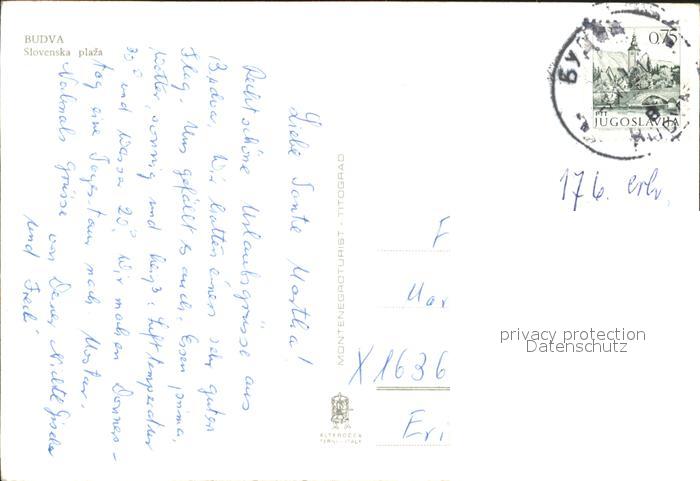 BUDVA
Slovenska plaža
Liebe Tante Martha!
Recht schöne Urlaubsgrüsse aus
Budva. Wir hatten einen sehr guten
Flug. Uns gefällt es auch. Essen prima,
Wetter, sonnig und heiß. Lufttemperatur
30° und Wasser 20°. Wir machen Donners-
tag eine Tagestour nach Mostar.
Nochmals Grüsse von Deiner Nichte Gisela
und Fredi
MONTENEGROTURIST - TITOGRAD
ALTEROCCA
TERNI - ITALY
0,75
PTT
JUGOSLAVIJA
БУДВА
17.6. erh.
F
Mar
X1636
Eri
privacy protection
Datenschutz